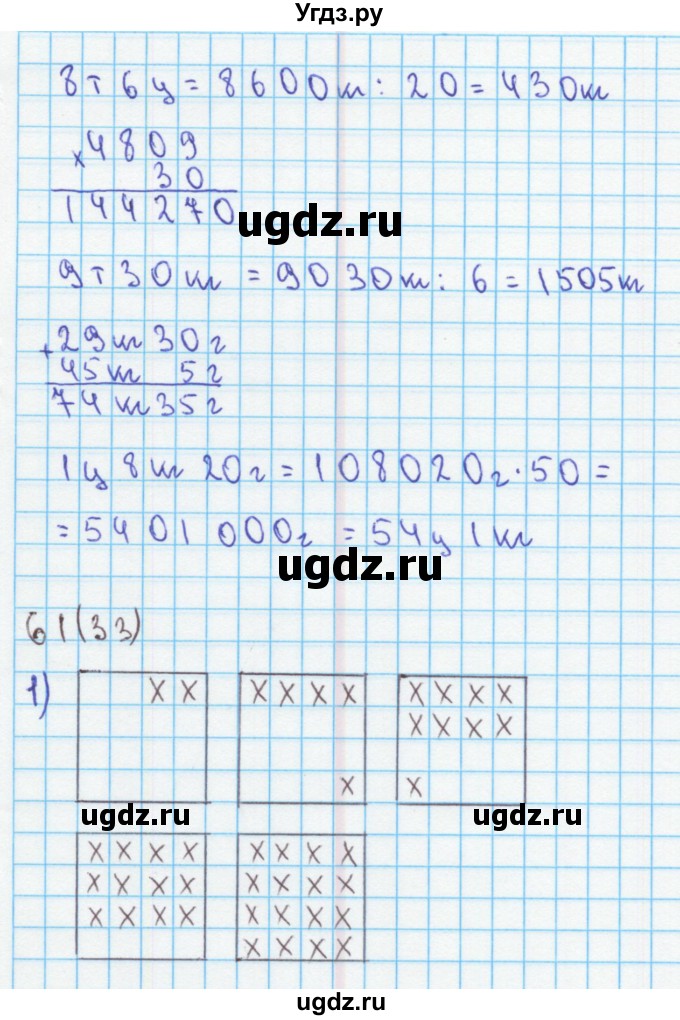 Угдз.ру
8т 6ц = 8600кг : 20 = 430кг
×4809
30
144270
ugdz.ru
9т 30кг = 9030кг : 6 = 1505кг
+29кг 30г
45кг 5г
74кг 35г
1ц 8кг 20г = 108020г · 50 =
= 5401000г = 54ц 1кг
ugdz.ru
61(33)
1)
X X X X X X X X X X
X X X X
X X
ugdz.ru ugdz.ru
X X X X X X X X
X X X X X X X X
X X X X X X X X
X X X X
ugdz.ru